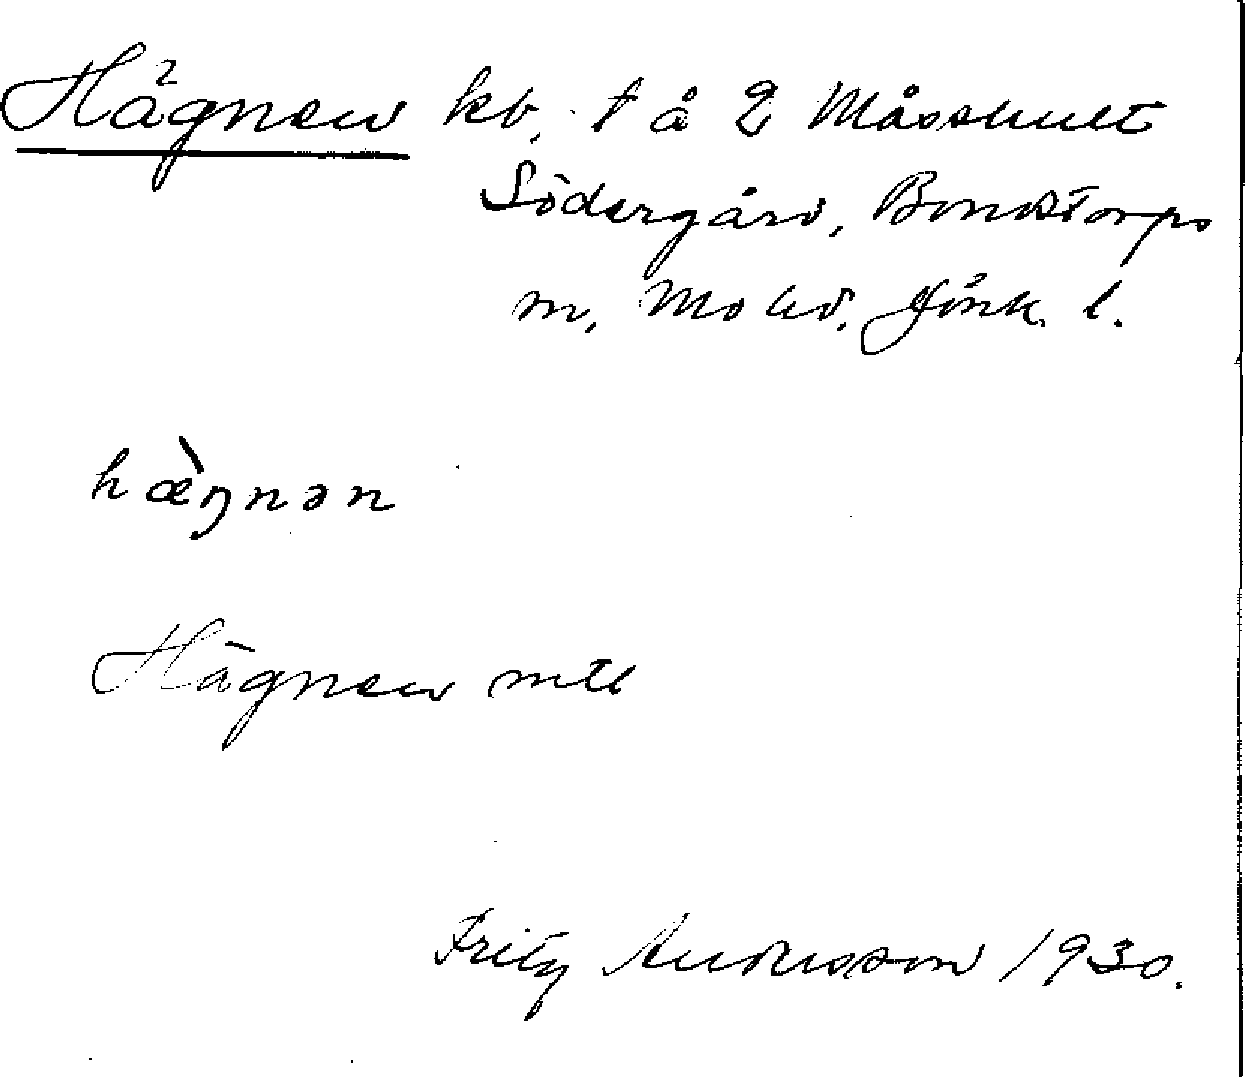 Hägnen kb. † å 2 Måsshult
Södergård, Bondstorps
m, Mo hd. Jönk. l.
hæ̀ŋnən
Hägnen mtl
Fritz Andersson 1930.